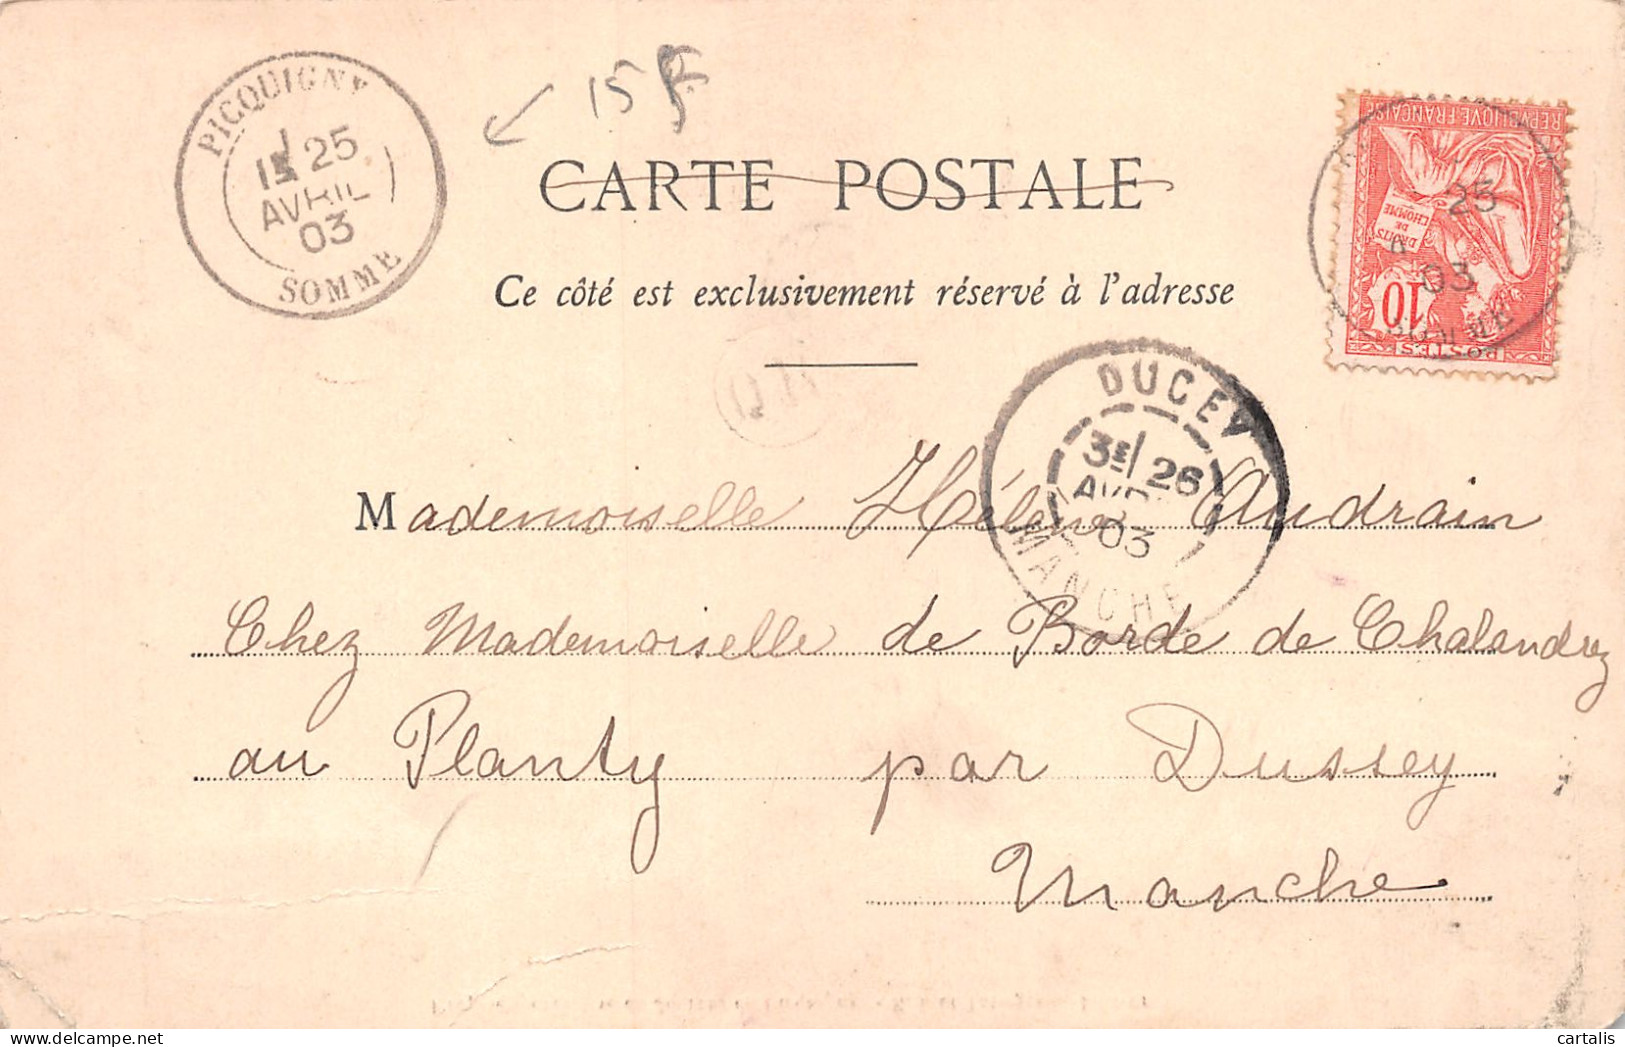 PICQUIGNY
25
AVRIL
03
SOMME
15 F
CARTE POSTALE
Ce côté est exclusivement réservé à l'adresse
REPVBLIQVE FRANÇAISE
DROITS
DE
L'HOMME
10
POSTES
25
03
DUCEY
3E 26
03
MANCHE
Mademoiselle Hélène Audrain
Chez Mademoiselle de Borde de Chalandrey
au Planty par Dussey
Manche
cartalis